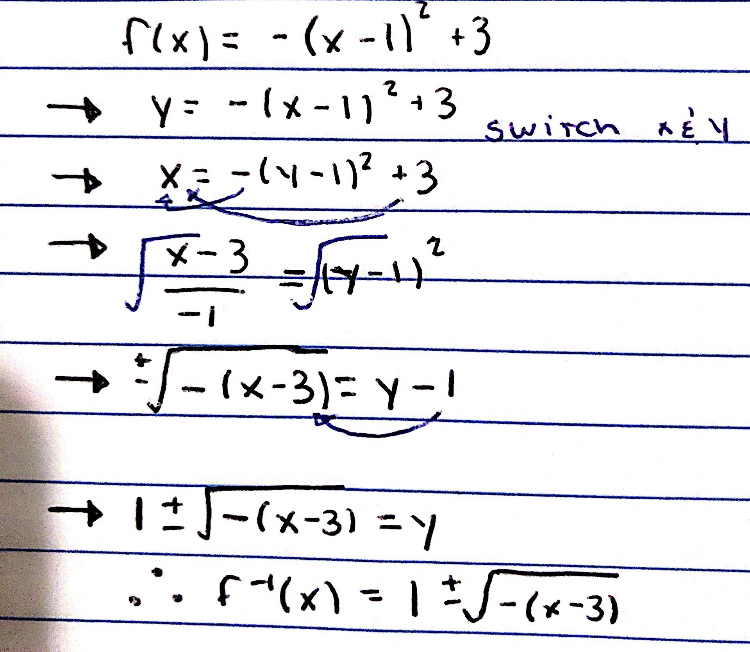 f(x) = -(x-1)² + 3
→ y = -(x-1)² + 3 switch x & y
→ x = -(y-1)² + 3
→ √((x-3)/-1) = √(y-1)²
→ ±√(-(x-3)) = y-1
→ 1 ± √(-(x-3)) = y
∴ f⁻¹(x) = 1 ± √(-(x-3))